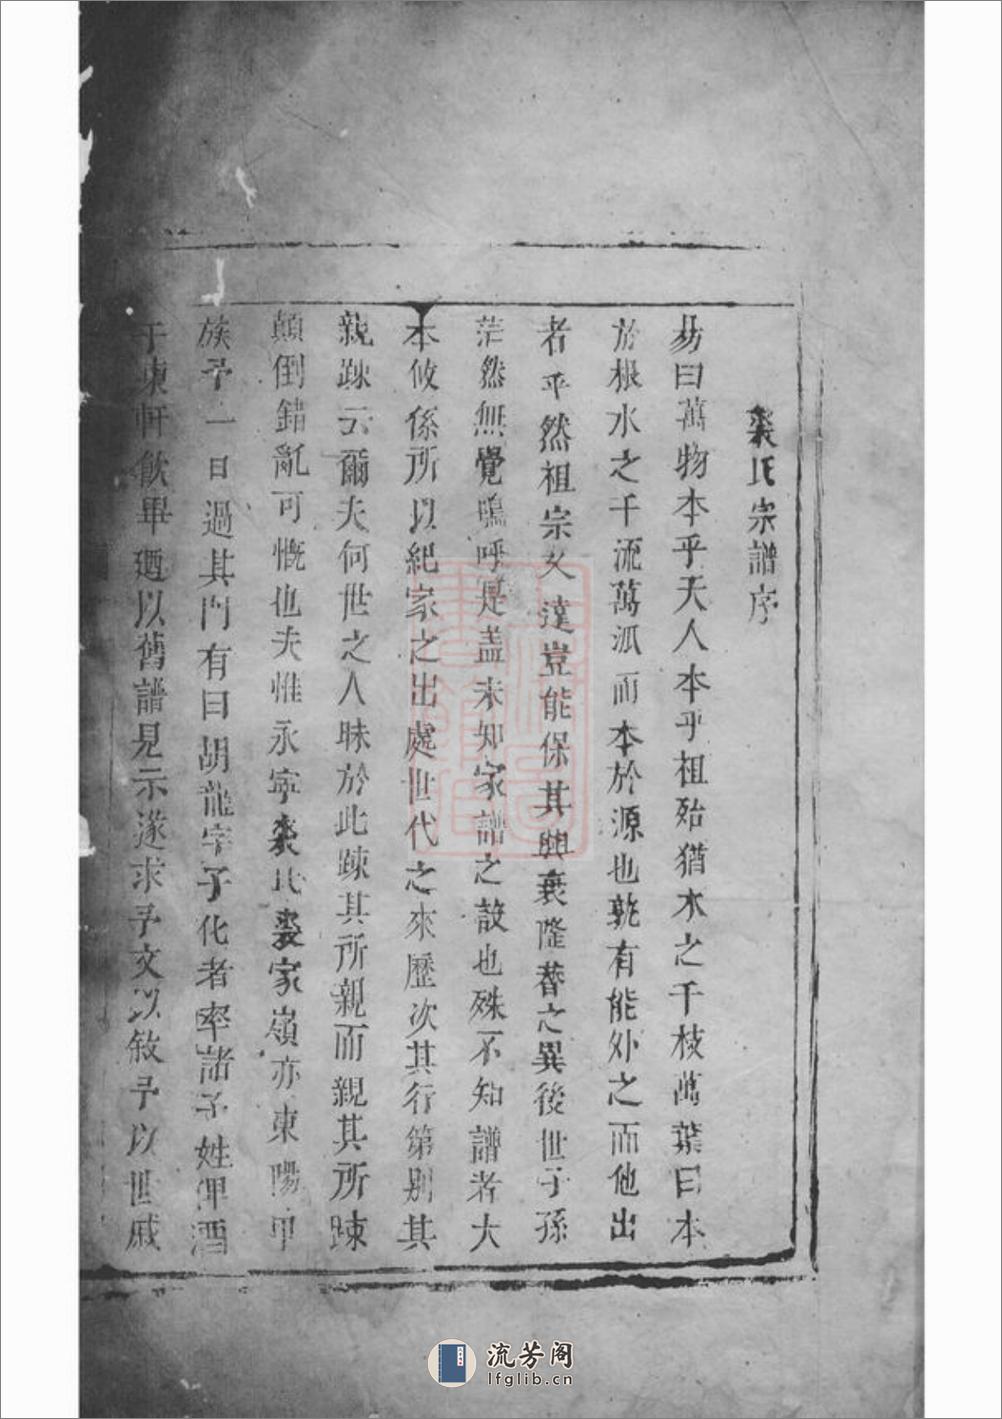 裘氏宗譜序
易曰萬物本乎天人本乎祖殆猶木之千枝萬葉曰本
於根水之千流萬派而本於源也孰有能外之而他出
者乎然祖宗久遠豈能保其興衰隆替之異後世子孫
茫然無覺嗚呼是盖未知家譜之設也殊不知譜者大
本攸係所以紀家之出處世代之來歷次其行第别其
親踈云爾夫何世之人昧於此踈其所親而親其所踈
顛倒錯亂可慨也夫惟永寧裘氏裘家嶺亦東陽甲
族予一日過其門有曰胡龍字子化者率諸子姓俾酒
于東軒飲畢廼以舊譜見示遂求予文以敘予以世戚
流芳阁
lfglib.cn